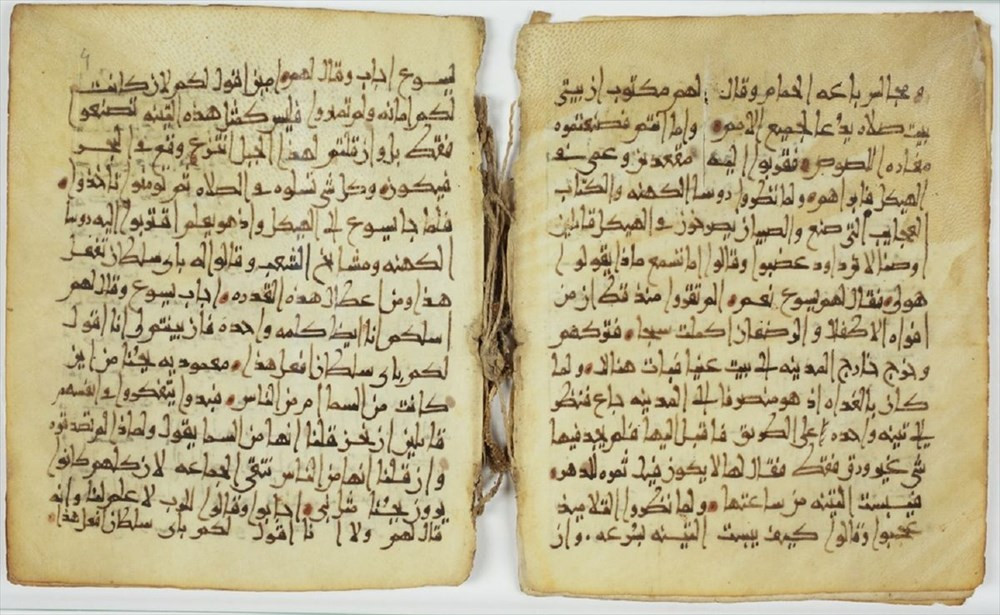 ومجالس باعه الحمام وقال لهم مكتوب ان بيتي
بيت صلاه يدعا لجميع الامم واما انتم فصنعتموه
مغاره اللصوص فقربوا اليه مقعدين وعمي في
الهيكل فابراهم ولما نظروا روسا الكهنه والكتاب
العجايب التي صنع والصبيان يصرخون في الهيكل قايلين
اوصنا لابن داود غضبوا وقالوا اما تسمع ماذا يقولوا
هولى فقال لهم يسوع نعم الم تقروا منذ قط ان من
افواه الاطفال والرضعان كملت سبحا فتركهم
وخرج خارج المدينه الى بيت عنيا فبات هنالك ولما
كان بالغداه اذ هو منصرف الى المدينه جاع فنظر
الى تينه واحده على الطريق فاقبل اليها فلم يجد فيها
شي غير ورق فقط فقال لها لا يكون فيك ثمره للدهر
فيبست التينه من ساعتها ولما نظروا التلاميذ
عجبوا وقالوا كيف يبست التينه بسرعه وان
يسوع اجاب وقال لهم امين اقول لكم لان كانت
لكم امانه ولم تمتروا فليس كمثل هذه التينه تصنعوا
فقط بل وان قلتم لهذا الجبل انتزع وقع في البحر
فيكون وكل شي تسلوه في الصلاه ثم تومنوا تاخذوا
فلما جا يسوع الى الهيكل واذ هو يعلم اقتربوا اليه روسا
الكهنه ومشايخ الشعب وقالوا له باي سلطان تفعل
هذا ومن اعطاك هذه القدره اجاب يسوع وقال لهم
اسلكم انا ايضا كلمه واحده فان بينتم لي انا اقول
لكم باي سلطان افعل هذا معموديه يحنا من اين
كانت من السما ام من الناس فبدوا يتفكروا في انفسهم
قايلين ان نحن قلنا انها من السما يقول ولماذا لم تصدقوه
وان قلنا انها من الناس نتقي الجماعه لان كلهم كانوا
يرون يحنا مثل نبي اجابوا وقالوا للرب لا علم لنا وانه
قال لهم ولا انا اقول لكم باي سلطان افعل هذا